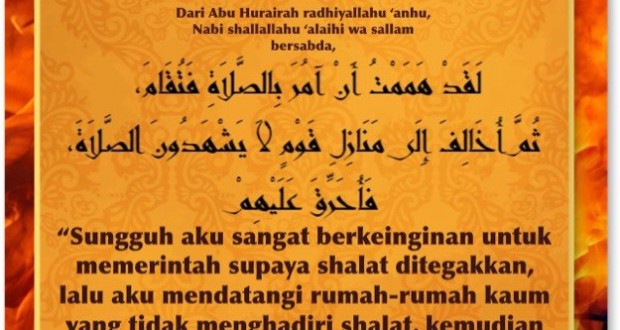 Dari Abu Hurairah radhiyallahu ‘anhu,
Nabi shallallahu ‘alaihi wa sallam
bersabda,
لَقَدْ هَمَمْتُ أَنْ آمُرَ بِالصَّلَاةِ فَتُقَامَ،
ثُمَّ أُخَالِفَ إِلَى مَنَازِلِ قَوْمٍ لَا يَشْهَدُونَ الصَّلَاةَ،
فَأُحَرِّقَ عَلَيْهِمْ
“Sungguh aku sangat berkeinginan untuk
memerintah supaya shalat ditegakkan,
lalu aku mendatangi rumah-rumah kaum
yang tidak menghadiri shalat, kemudian